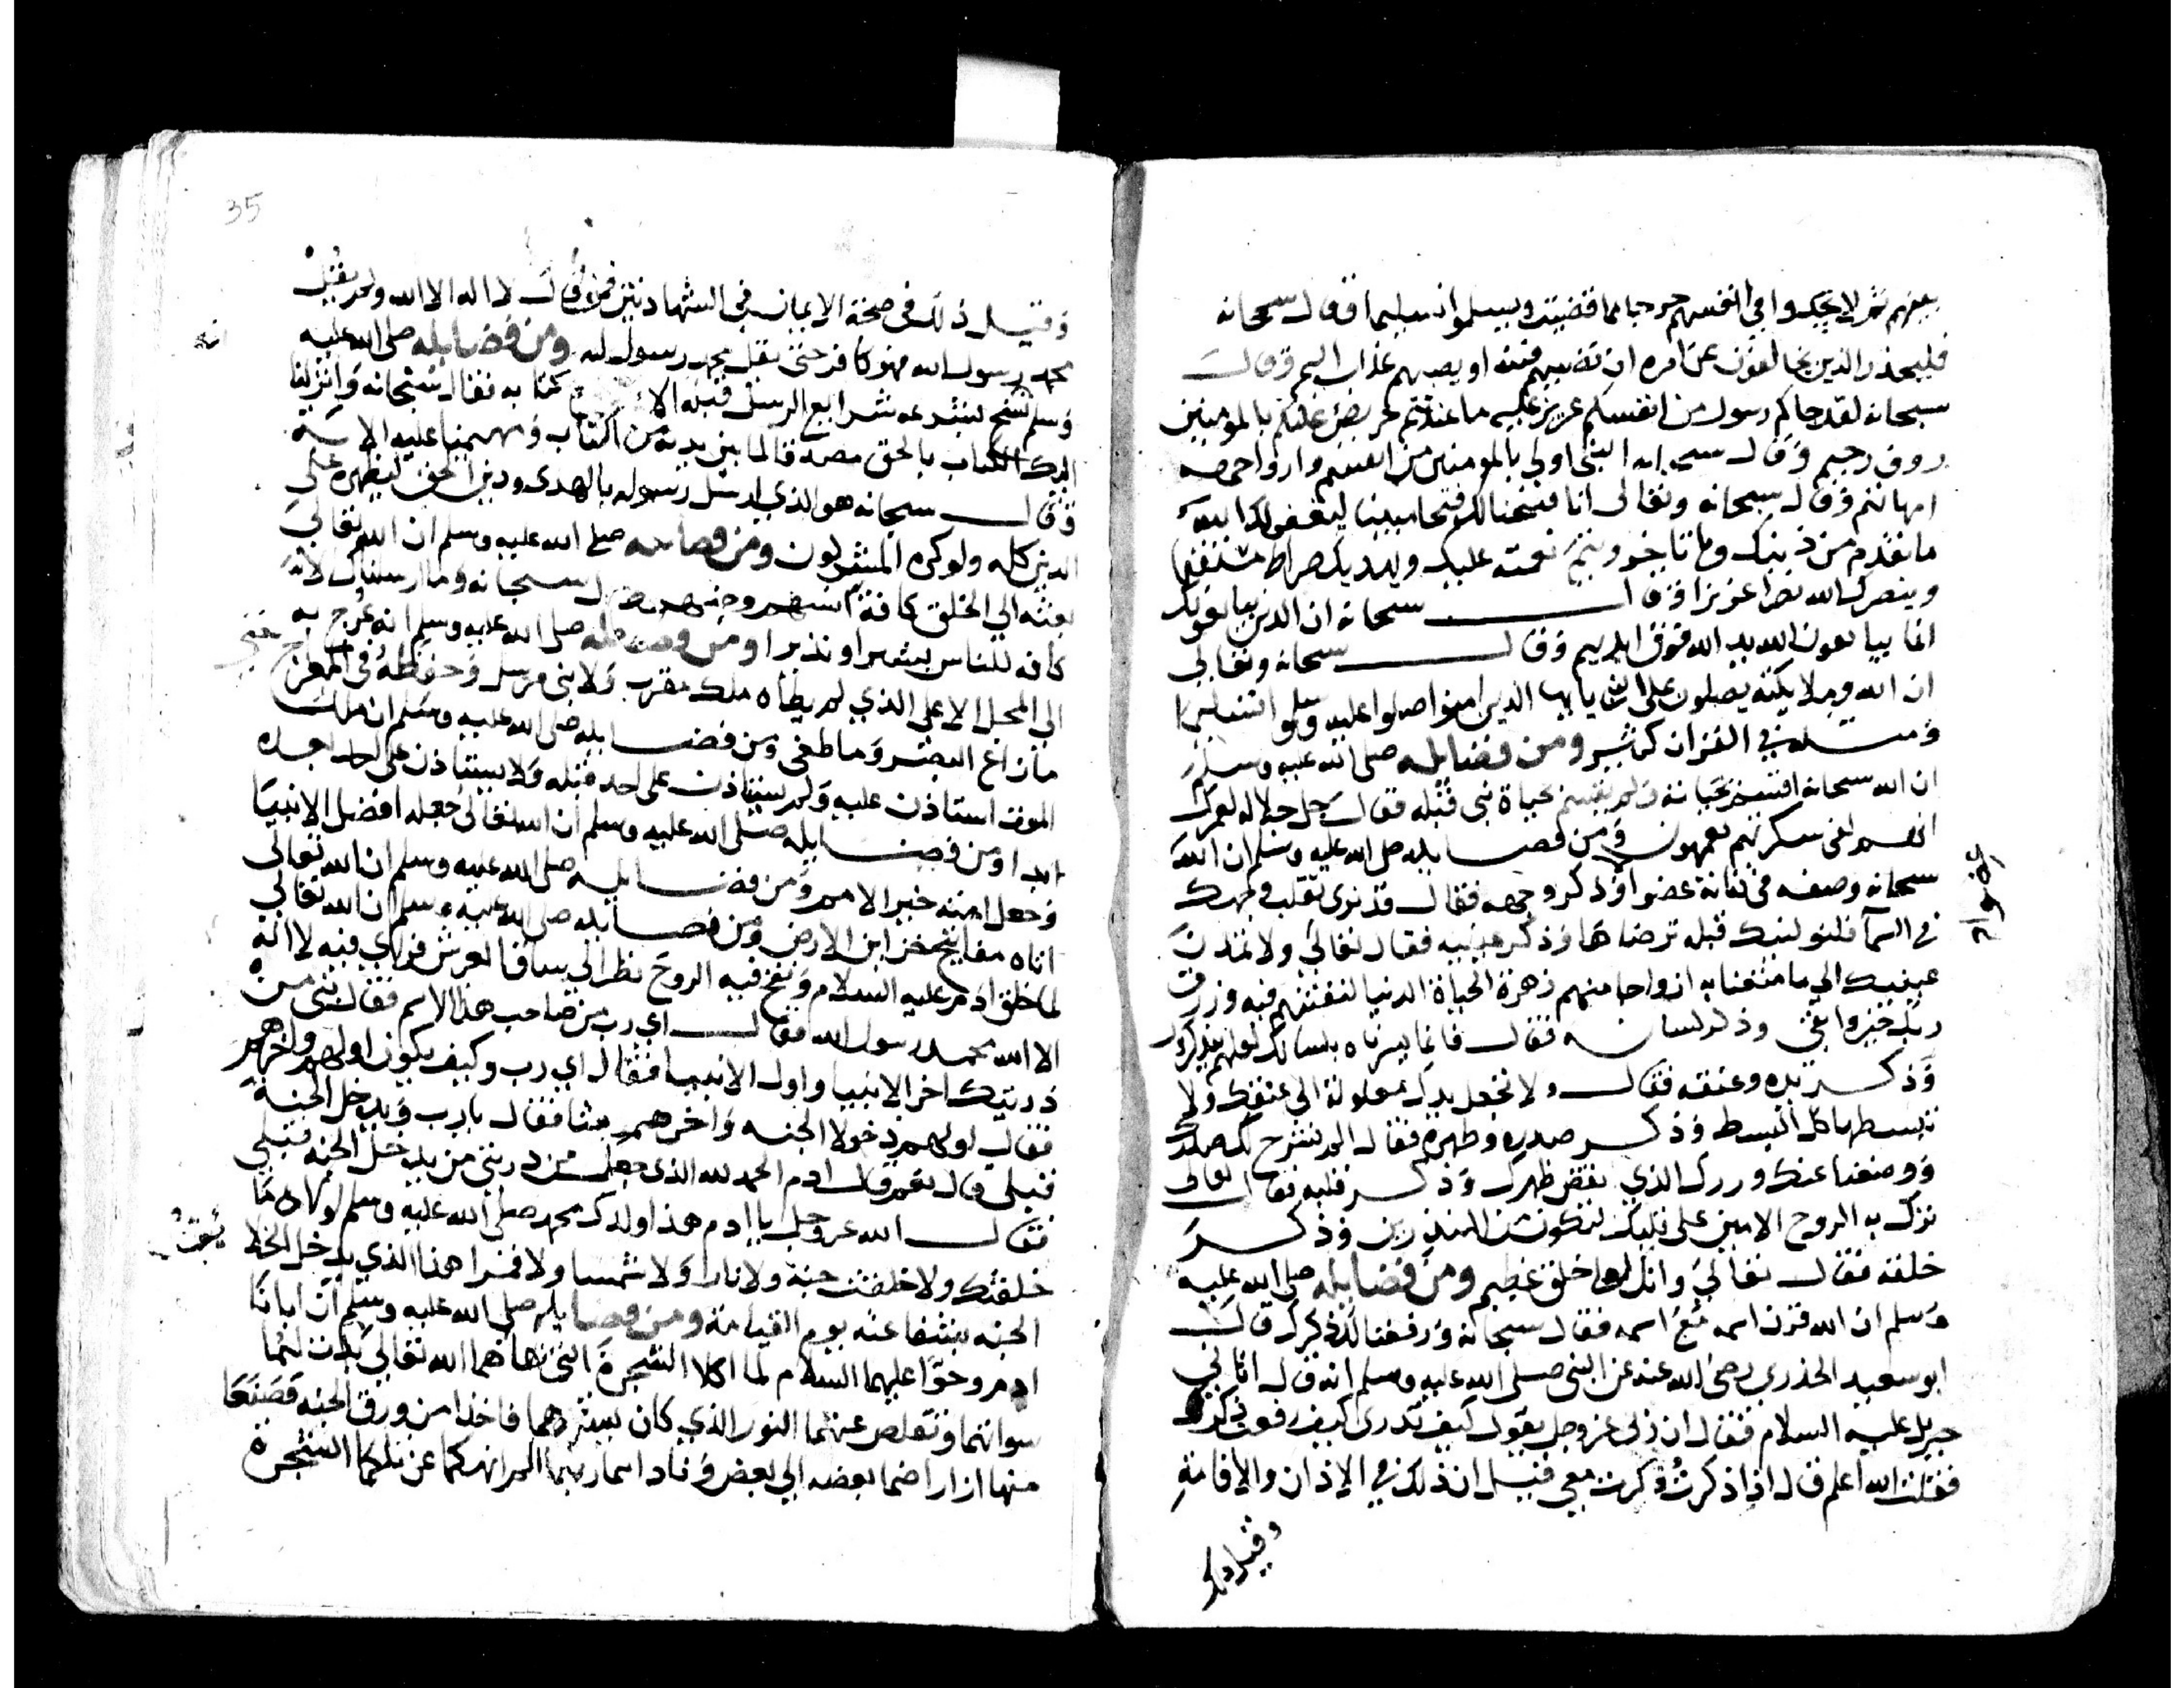 بينهم ثم لا يجدوا في انفسهم حرجا مما قضيت ويسلموا تسليما وقال سبحانه
فليحذر الذين يخالفون عن امره ان تصيبهم فتنة او يصيبهم عذاب اليم وقال
سبحانه لقد جاكم رسول من انفسكم عزيز عليه ما عنتم حريص عليكم بالمومنين
روف رحيم وقال سبحانه النبي اولى بالمومنين من انفسهم وازواجه
امهاتهم وقال سبحانه وتعالى انا فتحنا لك فتحا مبينا ليغفر لك الله
ما تقدم من ذنبك وما تاخر ويتم نعمته عليك ويهديك صراطا مستقيما
وينصرك الله نصرا عزيزا وقال سبحانه ان الذين يبايعونك
انما يبايعون الله يد الله فوق ايديهم وقال سبحانه وتعالى
ان الله وملايكته يصلون على النبي يايها الذين امنوا صلوا عليه وسلموا تسليما
ومثله في القران كثير ومن فضايله صلى الله عليه وسلم
ان الله سبحانه اقسم بحياته ولم يقسم بحياة نبي قبله فقال جل جلاله لعمرك
انهم لفي سكرتهم يعمهون ومن فضايله صلى الله عليه وسلم ان الله
سبحانه وصفه في كتابه عضوا وذكر وجهه فقال قد نرى تقلب وجهك
في السما فلنولينك قبلة ترضاها وذكر عينيه فقال تعالى ولا تمدن
عينيك الى ما متعنا به ازواجا منهم زهرة الحياة الدنيا لنفتنهم فيه ورزق
ربك خير وابقى وذكر لسانه فقال فانما يسرناه بلسانك لعلهم يتذكرون
وذكر يده وعنقه فقال ولا تجعل يدك مغلولة الى عنقك ولا
تبسطها كل البسط وذكر صدره وظهره فقال الم نشرح لك صدرك
ووضعنا عنك وزرك الذي انقض ظهرك وذكر قلبه فقال تعالى
نزل به الروح الامين على قلبك لتكون من المنذرين وذكر
خلقه فقال تعالى وانك لعلى خلق عظيم ومن فضايله صلى الله عليه
وسلم ان الله قرن اسمه مع اسمه فقال سبحانه ورفعنا لك ذكرك قال
ابو سعيد الخدري رضي الله عنه عن النبي صلى الله عليه وسلم انه قال اتاني
جبريل عليه السلام فقال ان ربي عز وجل يقول كيف تدري كيف رفعت ذكرك
فقلت الله اعلم قال اذا ذكرتُ ذكرت معي قيل ان ذلك في الاذان والاقامة
وقيل ذلك
35
وقيل ذلك في صحة الايمان في الشهادتين فمن قال لا اله الا الله ولم يقل
محمد رسول الله فهو كافر حتى يقل محمد رسول الله ومن فضايله صلى الله عليه
وسلم نسخ بشرعه شرايع الرسل قبله كتابه فقال سبحانه وانزلنا
اليك الكتاب بالحق مصدقا لما بين يديه من الكتاب ومهيمنا عليه الاية
وقال سبحانه هو الذي ارسل رسوله بالهدى ودين الحق ليظهره على
الدين كله ولو كره المشركون ومن فضايله صلى الله عليه وسلم ان الله تعالى
بعثه الى الخلق كافة انسهم وجنهم قال سبحانه وما ارسلناك الا
كافة للناس بشيرا ونذيرا ومن فضايله صلى الله عليه وسلم انه عُرج به
الى المحل الاعلى الذي لم يطاه ملك مقرب ولا نبي مرسل وحفظه في المعراج حتى
ما زاغ البصر وما طغى ومن فضايله صلى الله عليه وسلم ان ملك
الموت استاذن عليه ولم يستاذن على احد قبله ولا يستاذن على احد بعده
ابدا ومن فضايله صلى الله عليه وسلم ان الله تعالى جعله افضل الانبيا
وجعل امته خير الامم ومن فضايله صلى الله عليه وسلم ان الله تعالى
اتاه مفاتيح خزاين الارض ومن فضايله صلى الله عليه وسلم ان الله تعالى
لما خلق ادم عليه السلام ونفخ فيه الروح نظر الى ساق العرش فراي فيه لا اله
الا الله محمد رسول الله فقال اي رب من صاحب هذا الاسم فقال نبي من
ذريتك اخر الانبيا واول الانبيا فقال اي رب وكيف يكون اولهم واخرهم
فقال اولهم دخولا الجنه واخرهم بعثا فقال يا رب ويدخل الجنة
قبلي قال نعم قال ادم الحمد لله الذي جعل من ذريتي من يدخل الجنه قبلي
فقال الله عز وجل يا ادم هذا ولدك محمد صلى الله عليه وسلم لولاه ما
خلقتك ولا خلقت جنة ولا نارا ولا شمسا ولا قمرا هذا الذي يدخل الخلا يق
الجنه بشفاعته يوم القيامة ومن فضايله صلى الله عليه وسلم ان ابانا
ادم وحوا عليهما السلام لما اكلا الشجرة التي نهاهما الله تعالى بدت لهما
سواتهما وتقلص عنهما النور الذي كان يسترهما فاخذا من ورق الجنه فصنعا
منها ازارا ضما بعضه الى بعض وناداهما ربهما الم انهكما عن تلكما الشجرة